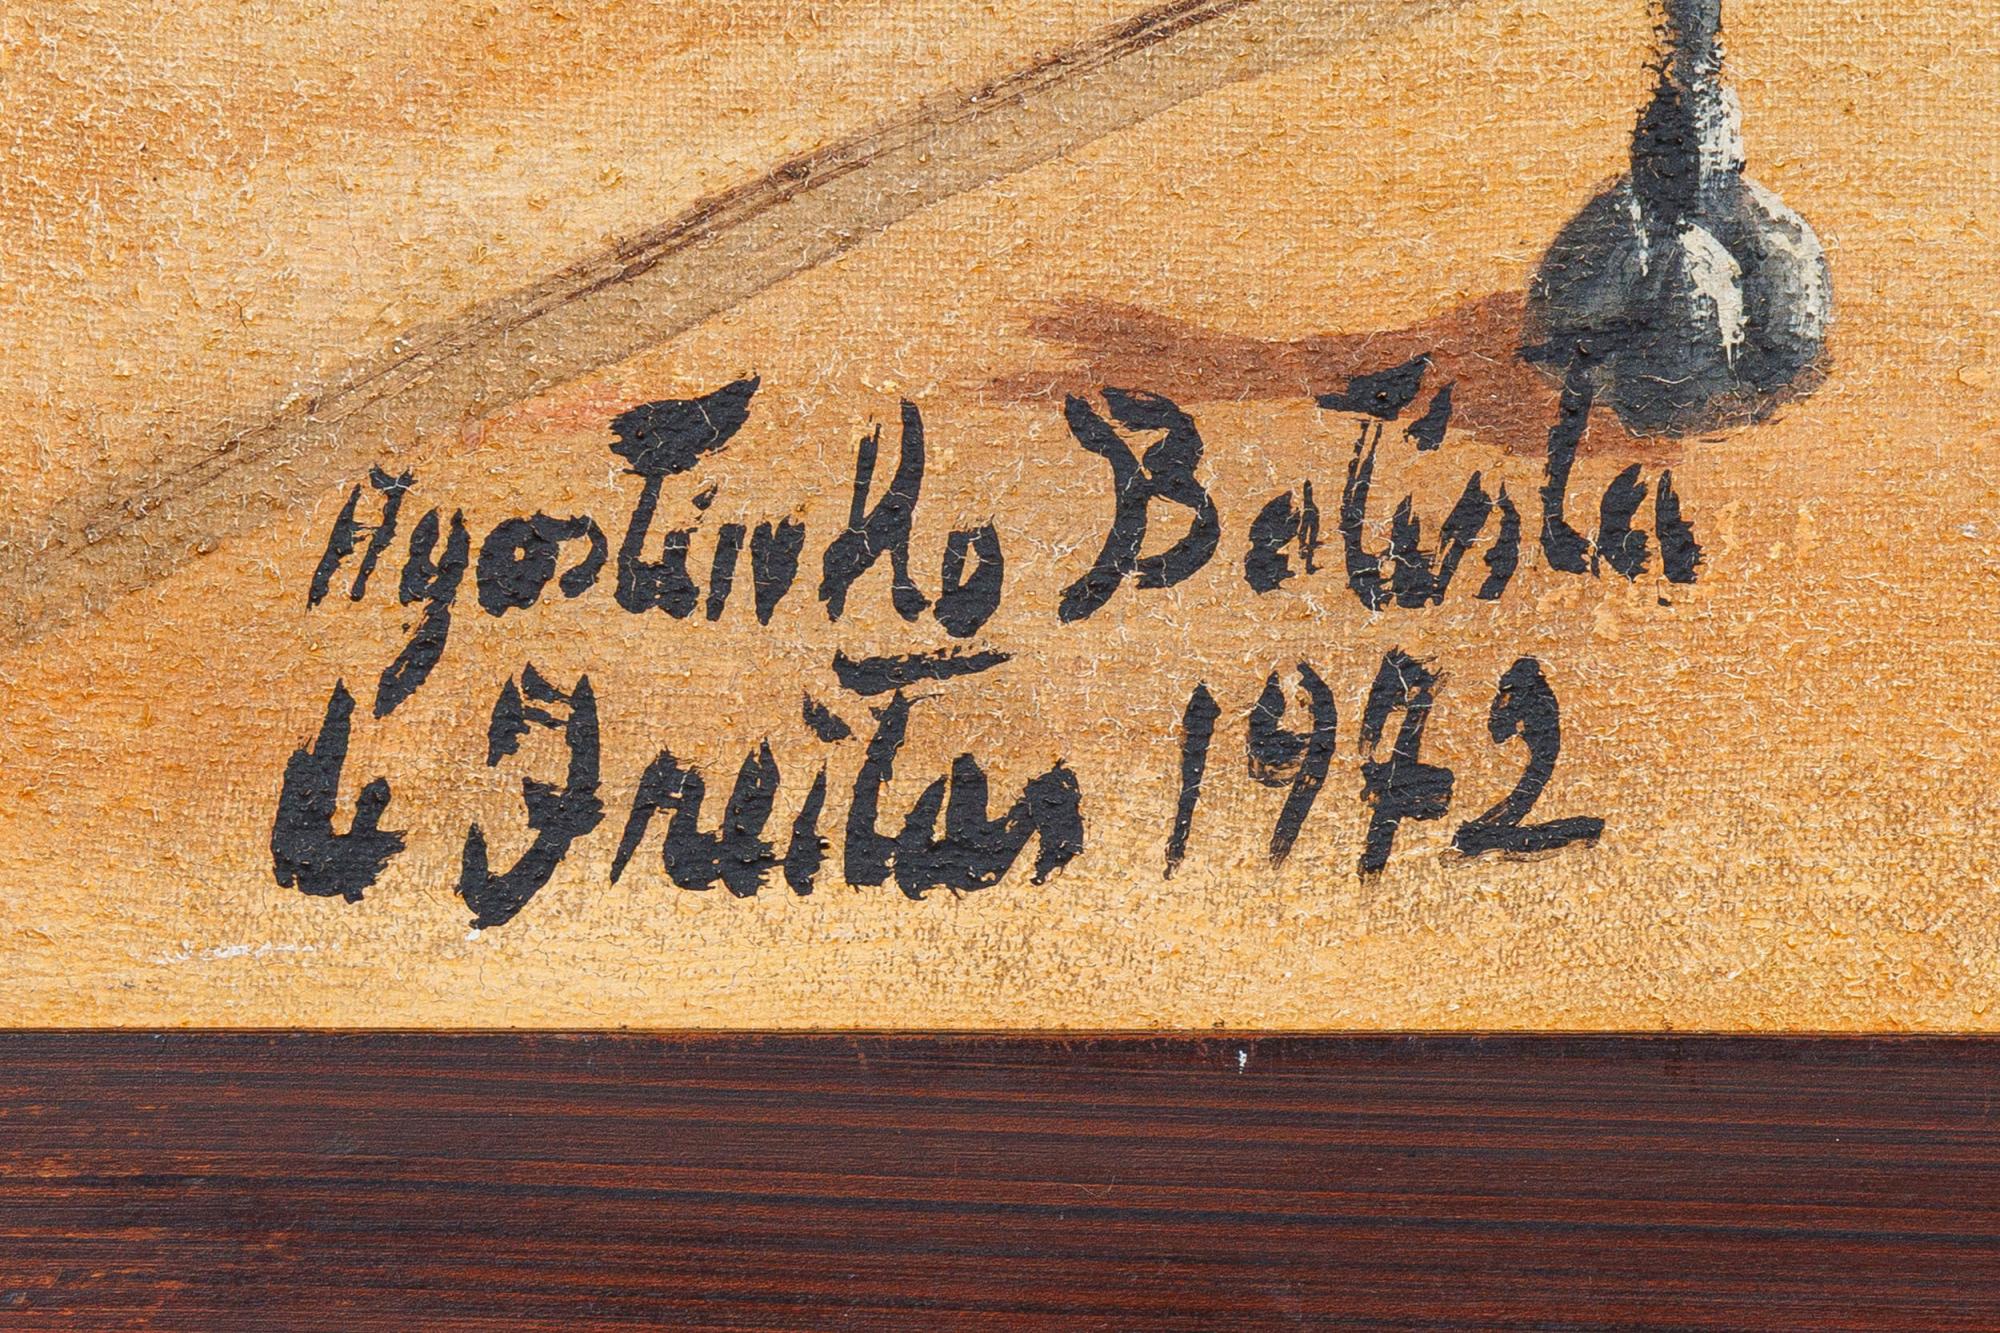 Agostinho Batista
de Freitas 1972